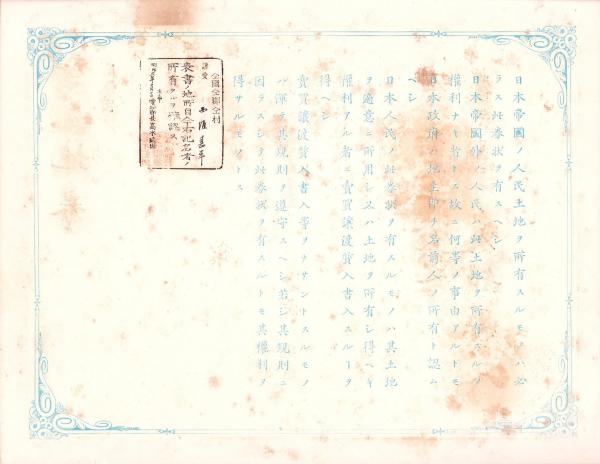 日本帝國ノ人民土地ヲ所有スルモノハ必
ラス此券狀ヲ有スヘシ
日本帝國外ノ人民ハ此土地ヲ所有スルノ
權利ナキ者トス故ニ何等ノ事由アルトモ
日本政府ハ地主即チ名前人ノ所有ト認ム
ヘシ
日本人民ノ此券狀ヲ有スルモノハ其土地
ヲ適意ニ所用シ又ハ土地ヲ所有シ得ヘキ
權利アル者ニ賣買讓渡質入書入スルヿヲ
得ヘシ
賣買讓渡質入書入等ヲナサントスルモノ
ハ渾テ其規則ヲ遵守スヘシ若シ其規則ニ
因ラスシテ此券狀ヲ有スルトモ其權利ヲ
得サルモノトス
全國全郡全村
讓受
表書ノ地所自今右記名者ノ
所有タルヲ確認ス